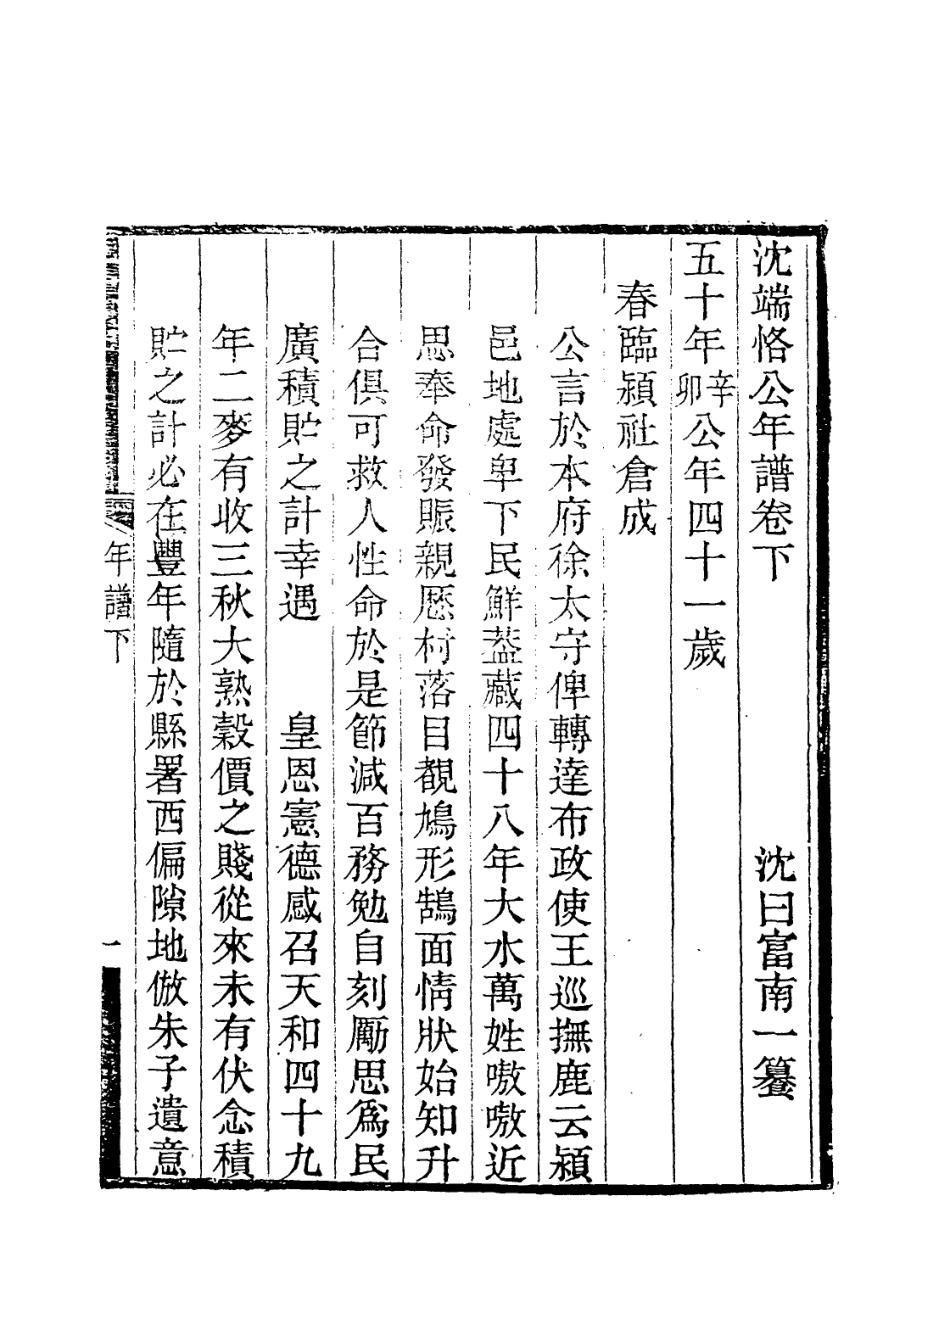 沈端恪公年譜卷下　　　　　　沈曰富南一纂
五十年辛卯公年四十一歲
春臨潁社倉成
公言於本府徐太守俾轉達布政使王巡撫鹿云潁
邑地處卑下民鮮蓋藏四十八年大水萬姓嗷嗷近
思奉命發賑親厯村落目覩鳩形鵠面情狀始知升
合俱可救人性命於是節減百務勉自刻勵思爲民
廣積貯之計幸遇　　皇恩憲德感召天和四十九
年二麥有收三秋大熟穀價之賤從來未有伏念積
貯之計必在豐年隨於縣署西偏隙地倣朱子遺意
年譜下
一